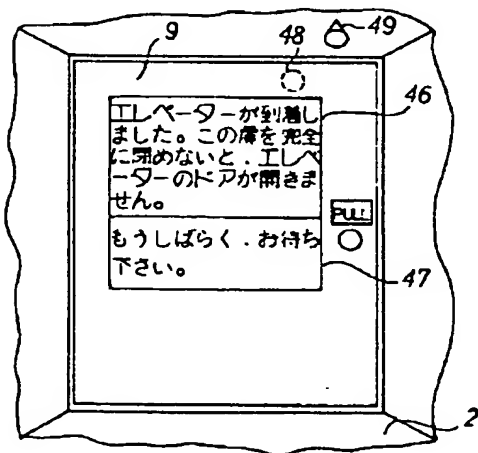 9
48
49
46
エレベーターが到着し
ました。この扉を完全
に閉めないと、エレベ
ーターのドアが開きま
せん。
PULL
もうしばらく、お待ち
下さい。
47
2